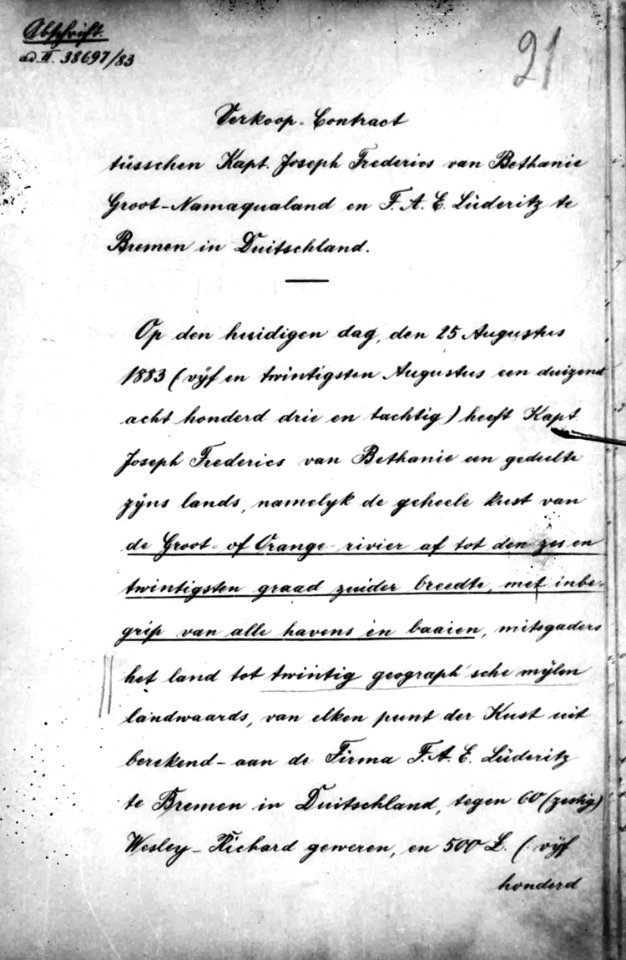 Abschrift.
ad II. 38697/83
21
Verkoop-Contract
tusschen Kapt. Joseph Frederics van Bethanie
Groot-Namaqualand en F. A. E. Lüderitz te
Bremen in Duitschland.
Op den huidigen dag, den 25 Augustus
1883 (vÿf en twintigsten Augustus een duizend
acht honderd drie en tachtig) heeft Kapt.
Joseph Frederics van Bethanie een gedeelte
zÿns lands, namelyk de geheele kust van
de Groot- of Orange-rivier af tot den zes en
twintigsten graad zuider breedte, met inbe-
grip van alle havens en baaien, mitsgaders
het land tot twintig geograph'sche mÿlen
landwaards, van elken punt der Kust uit
berekend - aan de Firma F. A. E. Lüderitz
te Bremen in Duitschland, tegen 60 (zestig)
Wesley-Richard geweren, en 500 £. (vÿf
honderd